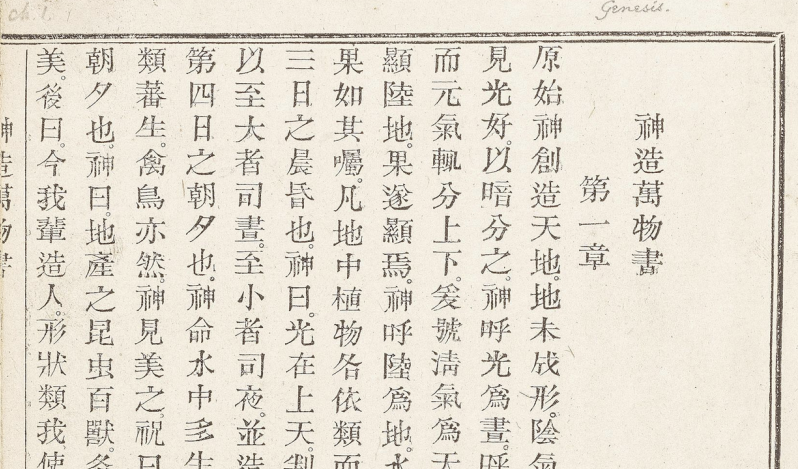 ch. 1.
Genesis.
神造萬物書
第一章
原始神創造天地。地未成形。陰氣
見光好。以暗分之。神呼光爲晝。呼
而元氣輒分上下。爰號淸氣爲天
顯陸地。果遂顯焉。神呼陸爲地。水
果如其囑。凡地中植物各依類而
三日之晨昏也。神曰。光在上天。判
以至大者司晝。至小者司夜。並造
第四日之朝夕也。神命水中多生
類蕃生。禽鳥亦然。神見美之。祝曰
朝夕也。神曰。地產之昆虫百獸。各
美。後曰。今我輩造人。形狀類我使
神造萬物書